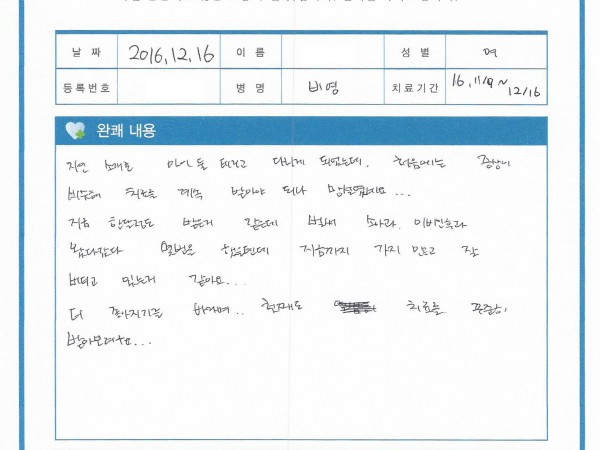 날 짜 2016.12.16 이 름 성 별 여
등록번호 병 명 비염 치료기간 16.11/9~12/16
완쾌 내용
지인 소개로 아이들 데리고 다니게 되었는데. 처음에는 증상이
비슷해 치료를 계속 받아야 되나 망설였지요...
지금 한달정도 받은거 같은데 소아과. 이비인후과
왔다갔다 몇번은 했을텐데 지금까지 가지 않고 잘
버티고 있는거 같아요...
더 좋아지기를 바라며.. 현재도 치료를 꾸준히
받아보려구요...